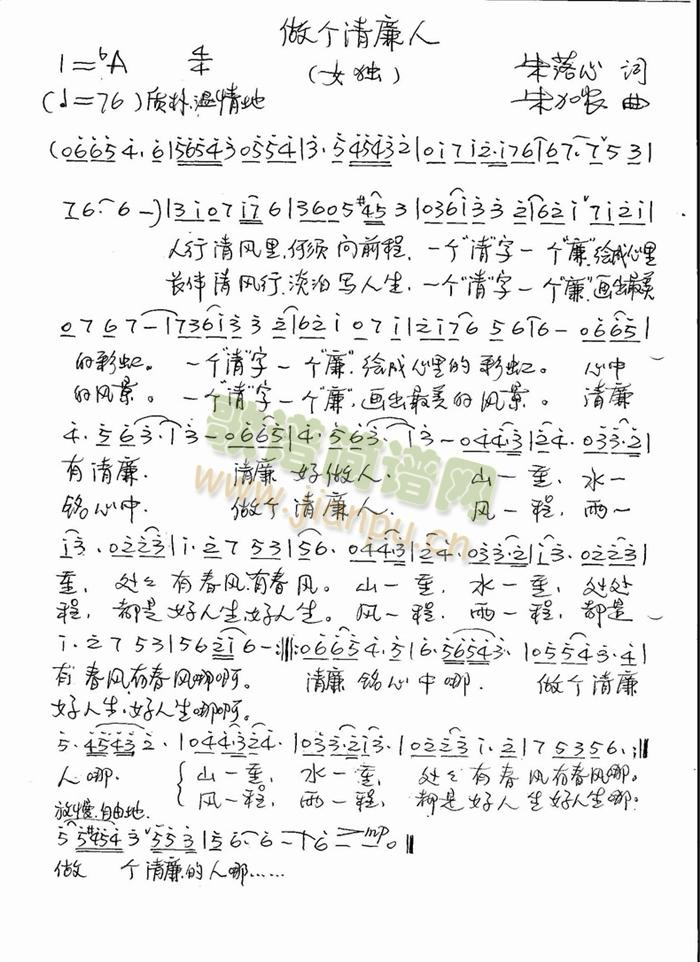 做个清廉人
1=♭A 4/4 (女独) 朱落心 词
(♩=76) 质朴、温情地 朱加农 曲
(0665 4·6|56543 0554|3·5 45432|0i7i2·i76|67·75 3|
76·6 -)|3i07i76|3605#453|036i33 2|62i 7i2i|
人行清风里,何须向前程,一个“清”字一个“廉”,绘成心里
长伴清风行,淡泊写人生,一个“清”字一个“廉”,画出最美
0767-|736i33 2|62i 07i|2i76 56|6- 0665|
的彩虹。一个“清”字一个“廉”,绘成心里的彩虹。心中
的风景。一个“清”字一个“廉”,画出最美的风景。清廉
4·563·|3-0665|4·563·|3-044·3|24·033·2|
有清廉. 清廉好做人. 山一重,水一
铭心中. 做个清廉人. 风一程,雨一
i3·0223|i·27 53|56·044·3|24·033·2|i3·0223|
重,处处有春风,有春风。山一重,水一重,处处
程,都是好人生,好人生。风一程,雨一程,都是
i·27 53|562i6-:||:06654·5|6·56543·|05543·4|
有春风,有春风哪啊。清廉铭心中哪. 做个清廉
好人生,好人生哪啊。
5·45432·|044·324·|033·2i3·|0223i·2|75356·:||
人哪. 山一重,水一重,处处有春风有春风哪。
风一程,雨一程,都是好人生好人生哪.
放慢.自由地
5 5#454 3 553|56·6-|6- -0||
mp
做 个清廉的人哪……
歌谱简谱网
www.jianpu.cn